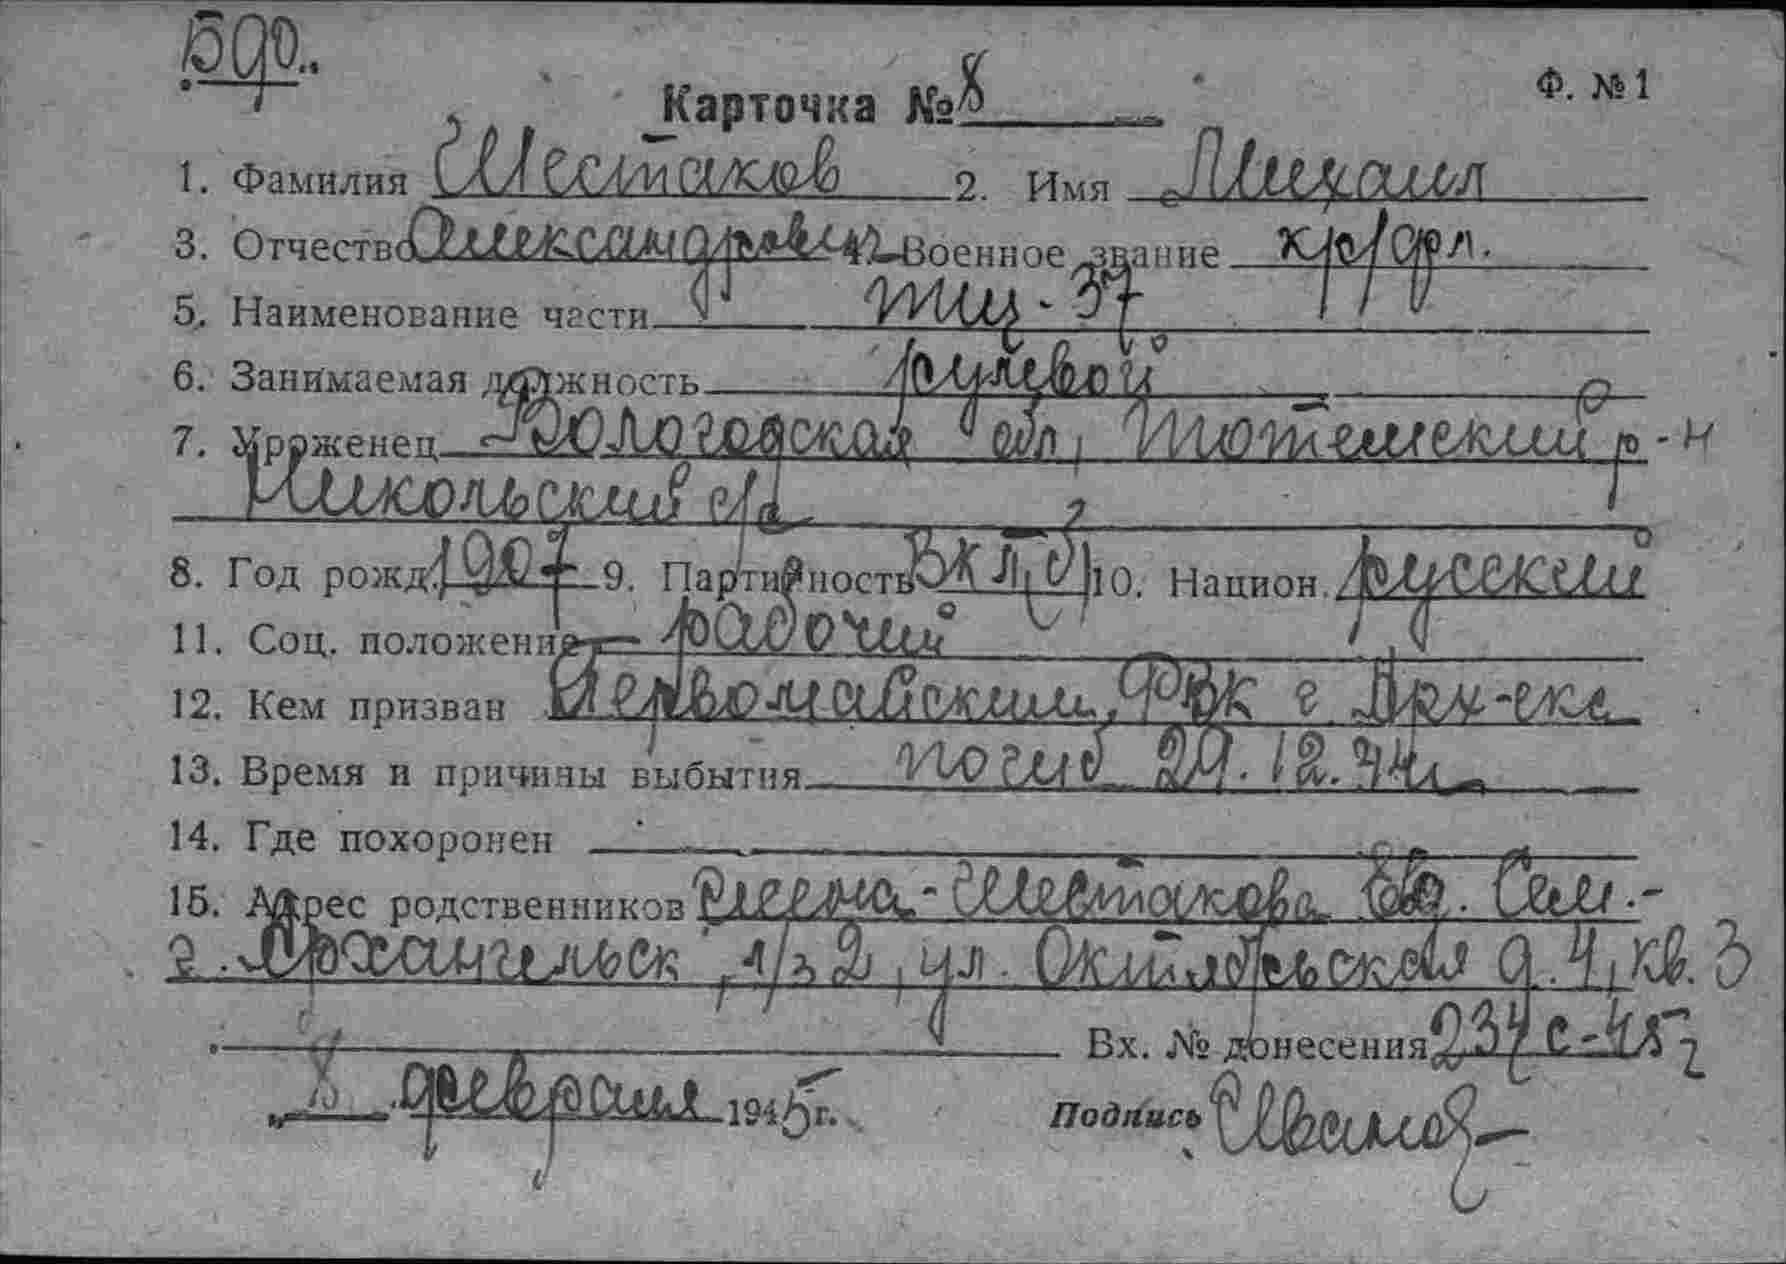 Ф. №1
Карточка № 8
1. Фамилия Шестаков 2. Имя Михаил
3. Отчество Александрович Военное звание кр/фл.
5. Наименование части ТЩ-37
6. Занимаемая должность рулевой
7. Уроженец Вологодская обл, Тотемский р-н
Никольский с/с
8. Год рожд. 1907 9. Партийность ВКП(б) 10. Национ. русский
11. Соц. положение рабочий
12. Кем призван Первомайским РВК г. Арх-ска
13. Время и причины выбытия погиб 29.12.44г
14. Где похоронен
15. Адрес родственников жена - Шестакова Сем.-
г. Архангельск, л/з 2, ул. Октябрьская д. 4, кв. 3
Вх. № донесения 234с-45г
„8" февраля 1945г. Подпись